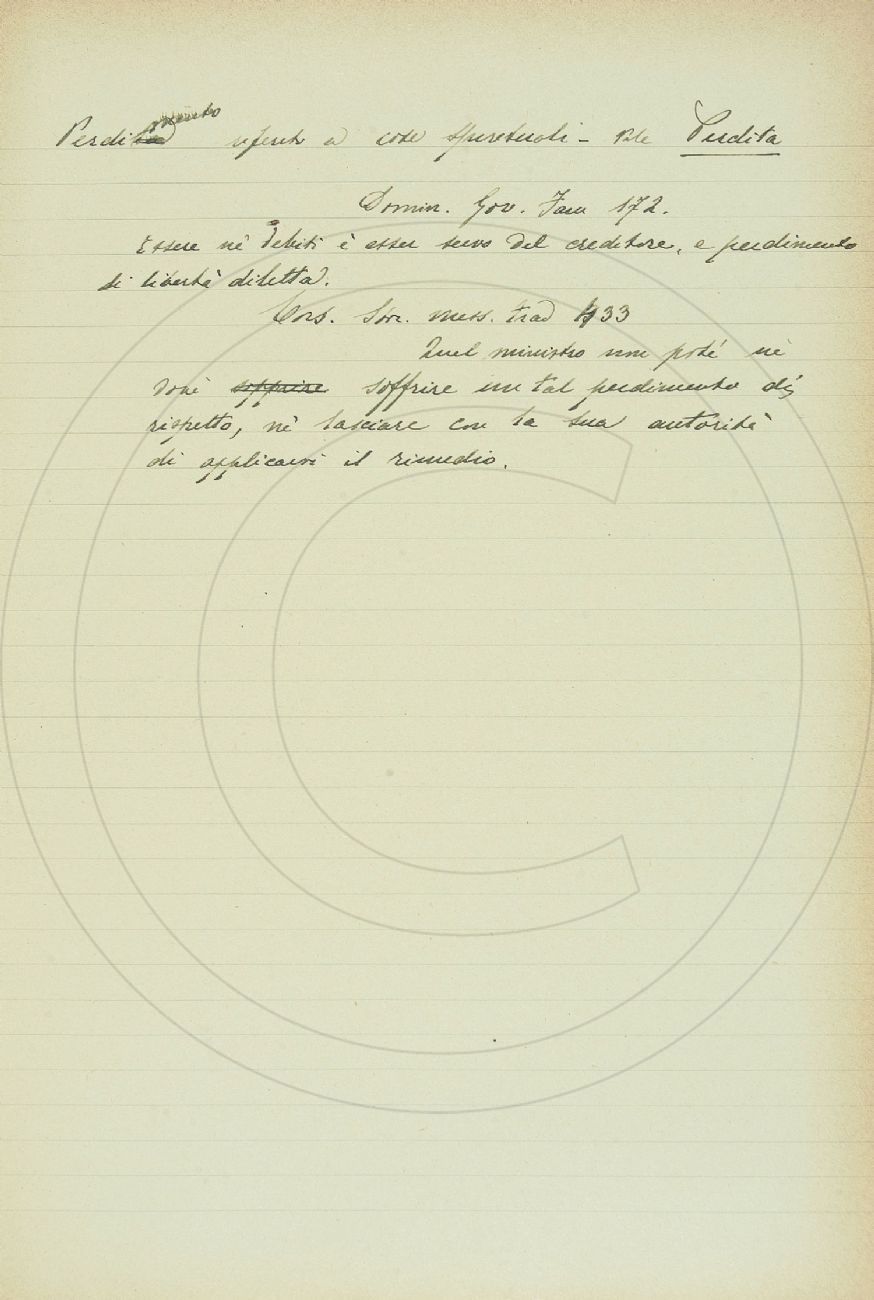 Perdimento riferito a cose spirituali - Perdita
Domin. Gov. Fam 172.
Essere ne' debiti è esser servo del creditore, e perdimento
di libertà diletta.
Cors. Stor. mess. trad 433
Quel ministro non poté nè
dové soppire soffrire un tal perdimento di
rispetto, nè lasciare con la sua autorità
di applicarvi il rimedio.